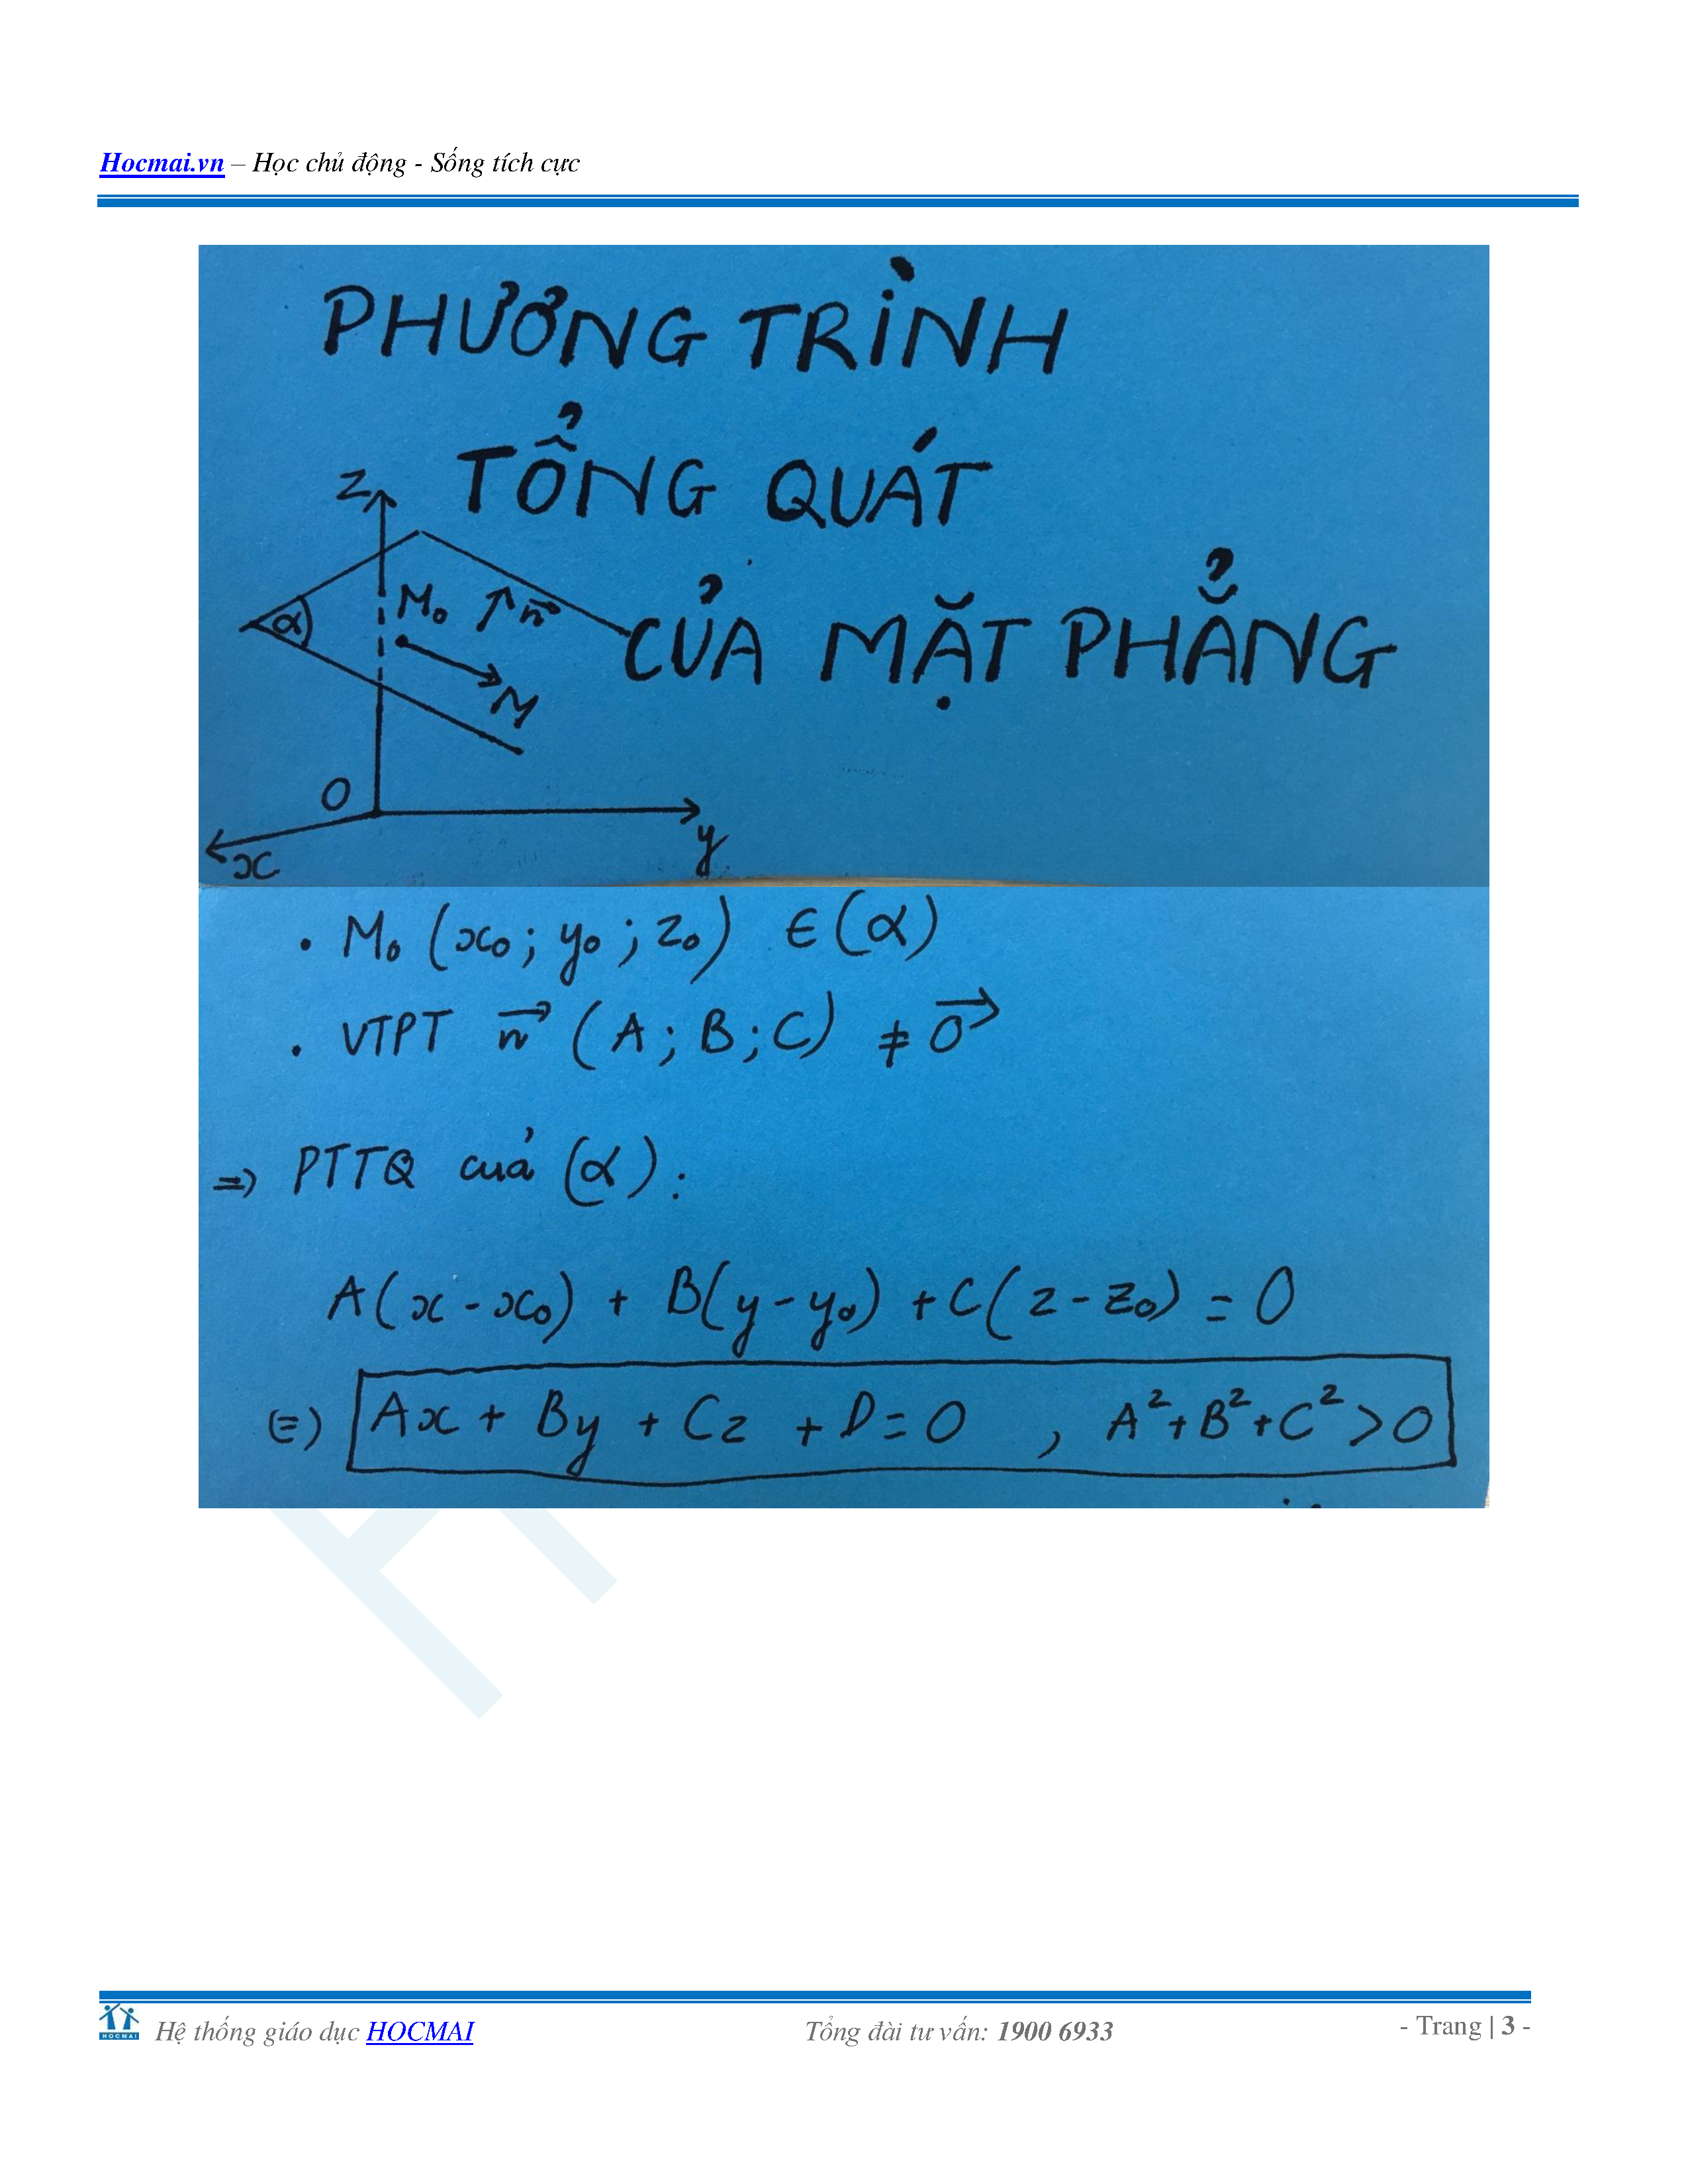 Hocmai.vn – Học chủ động - Sống tích cực
PHƯƠNG TRÌNH
TỔNG QUÁT
CỦA MẶT PHẲNG
z
α
M₀
n⃗
M
O
x
y
• M₀ (x₀; y₀; z₀) ∈ (α)
• VTPT n⃗ (A; B; C) ≠ 0⃗
⇒ PTTQ của (α):
A(x - x₀) + B(y - y₀) + C(z - z₀) = 0
⇔ Ax + By + Cz + D = 0 , A² + B² + C² > 0
H
HOCMAI
Hệ thống giáo dục HOCMAI Tổng đài tư vấn: 1900 6933 - Trang | 3 -